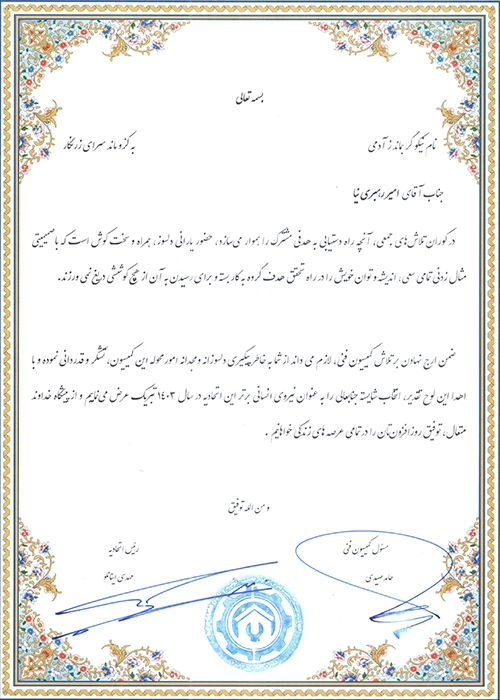 بسمه تعالی
نام نیکو گر بماند ز آدمی به کزو ماند سرای زرنگار
جناب آقای امیر رهبری نیا
در کوران تلاش‌های جمعی، آنچه راه دستیابی به هدفی مشترک را هموار می‌سازد، حضور یارانی دلسوز، همراه و سخت کوش است که با صمیمیتی
مثال زدنی تمامی سعی، اندیشه و توان خویش را در راه تحقق هدف گروه به کار بسته و برای رسیدن به آن از هیچ کوششی دریغ نمی ورزند.
ضمن ارج نهادن بر تلاش کمیسیون فنی، لازم می داند از شما به خاطر پیگیری دلسوزانه و مجدانه امور محوله این کمیسیون، تشکر و قدردانی نموده و با
اهدا این لوح تقدیر، انتخاب شایسته جنابعالی را به عنوان نیروی انسانی برتر این اتحادیه در سال ۱۴۰۳ تبریک عرض می‌نماییم و از پیشگاه خداوند
متعال، توفیق روز افزون‌تان را در تمامی عرصه های زندگی خواهانیم .
و من الله توفیق
مسئول کمیسیون فنی رئیس اتحادیه
حامد صیدی مهدی